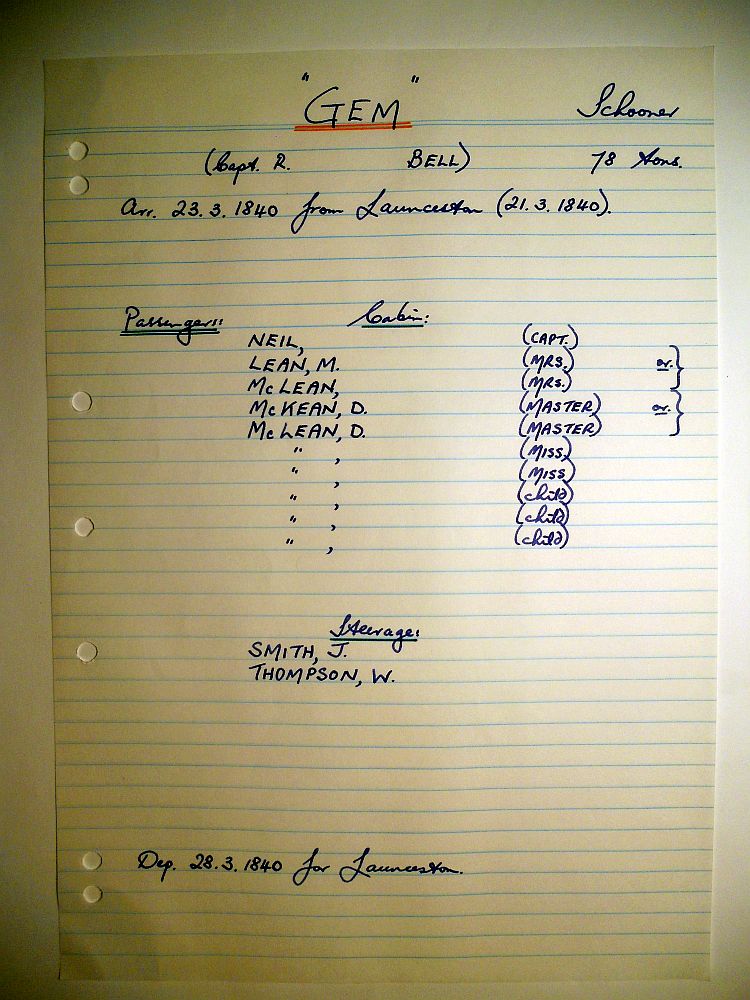 "GEM" Schooner
(Capt. R. BELL) 78 tons.
Arr. 23.3.1840 from Launceston (21.3.1840).
Passengers: Cabin:
NEIL, (CAPT.)
LEAN, M. (MRS.) or. }
McLEAN, (MRS.)
McKEAN, D. (MASTER) or. }
McLEAN, D. (MASTER)
" , (MISS)
" , (MISS)
" , (child)
" , (child)
" , (child)
Steerage:
SMITH, J.
THOMPSON, W.
Dep. 28.3.1840 for Launceston.